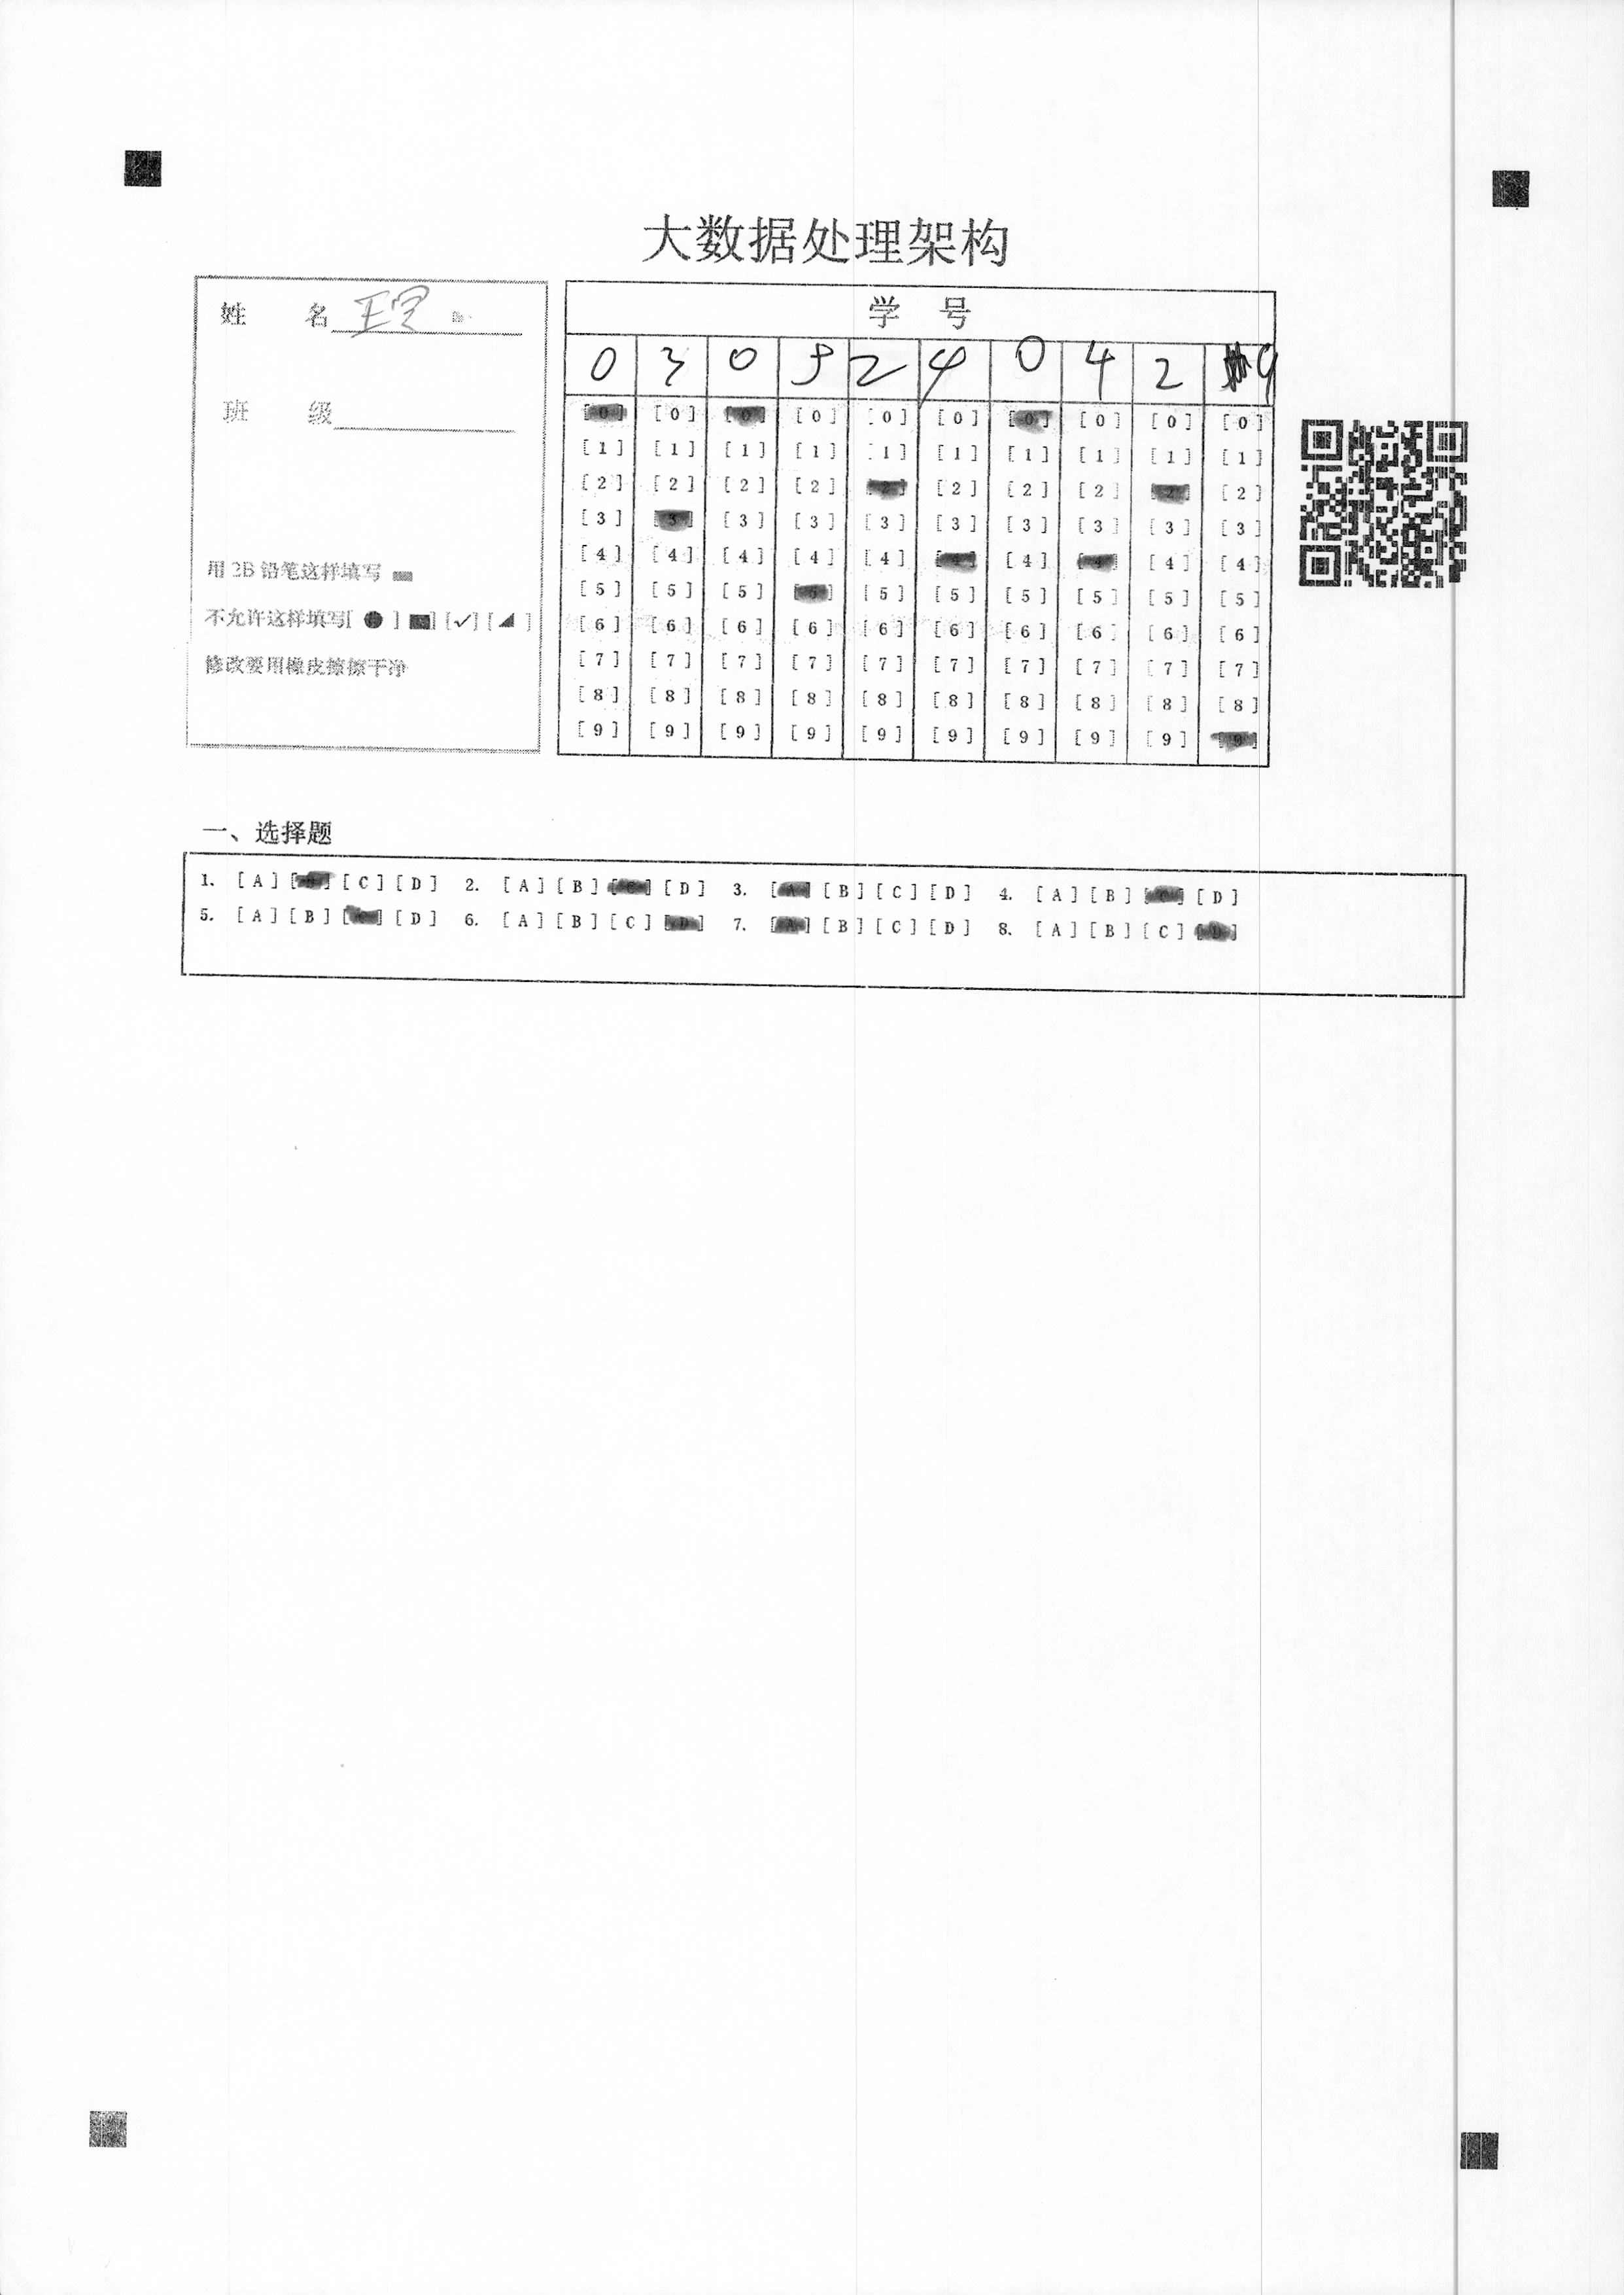 大数据处理架构
姓 名 王
班 级
用 2B 铅笔这样填写
不允许这样填写[ ● ] ■] [✓] [◢ ]
修改要用橡皮擦擦干净
学 号
0 3 0 5 2 4 0 4 2 9
[0] [0] [0] [0] [0] [0] [0] [0] [0] [0]
[1] [1] [1] [1] [1] [1] [1] [1] [1] [1]
[2] [2] [2] [2] [2] [2] [2] [2] [2] [2]
[3] [3] [3] [3] [3] [3] [3] [3] [3] [3]
[4] [4] [4] [4] [4] [4] [4] [4] [4] [4]
[5] [5] [5] [5] [5] [5] [5] [5] [5] [5]
[6] [6] [6] [6] [6] [6] [6] [6] [6] [6]
[7] [7] [7] [7] [7] [7] [7] [7] [7] [7]
[8] [8] [8] [8] [8] [8] [8] [8] [8] [8]
[9] [9] [9] [9] [9] [9] [9] [9] [9] [9]
一、选择题
1. [A] [B] [C] [D] 2. [A] [B] [C] [D] 3. [A] [B] [C] [D] 4. [A] [B] [C] [D]
5. [A] [B] [C] [D] 6. [A] [B] [C] [D] 7. [A] [B] [C] [D] 8. [A] [B] [C] [D]